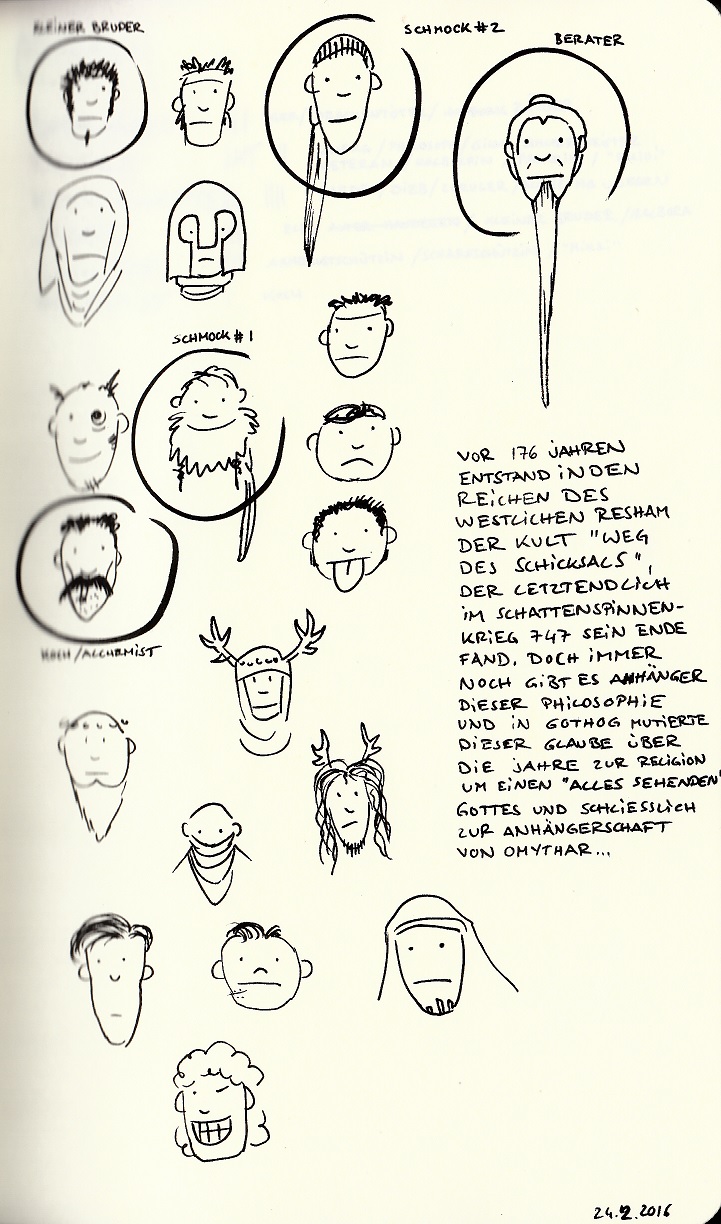 KLEINER BRUDER
SCHMOCK #2
BERATER
SCHMOCK #1
KOCH/ALCHEMIST
VOR 176 JAHREN
ENTSTAND IN DEN
REICHEN DES
WESTLICHEN RESHAM
DER KULT "WEG
DES SCHICKSALS",
DER LETZTENDLICH
IM SCHATTENSPINNEN-
KRIEG 747 SEIN ENDE
FAND. DOCH IMMER
NOCH GIBT ES ANHÄNGER
DIESER PHILOSOPHIE
UND IN GOTHOG MUTIERTE
DIESER GLAUBE ÜBER
DIE JAHRE ZUR RELIGION
UM EINEN "ALLES SEHENDEN"
GOTTES UND SCHLIESSLICH
ZUR ANHÄNGERSCHAFT
VON OMYTHAR...
24.2.2016